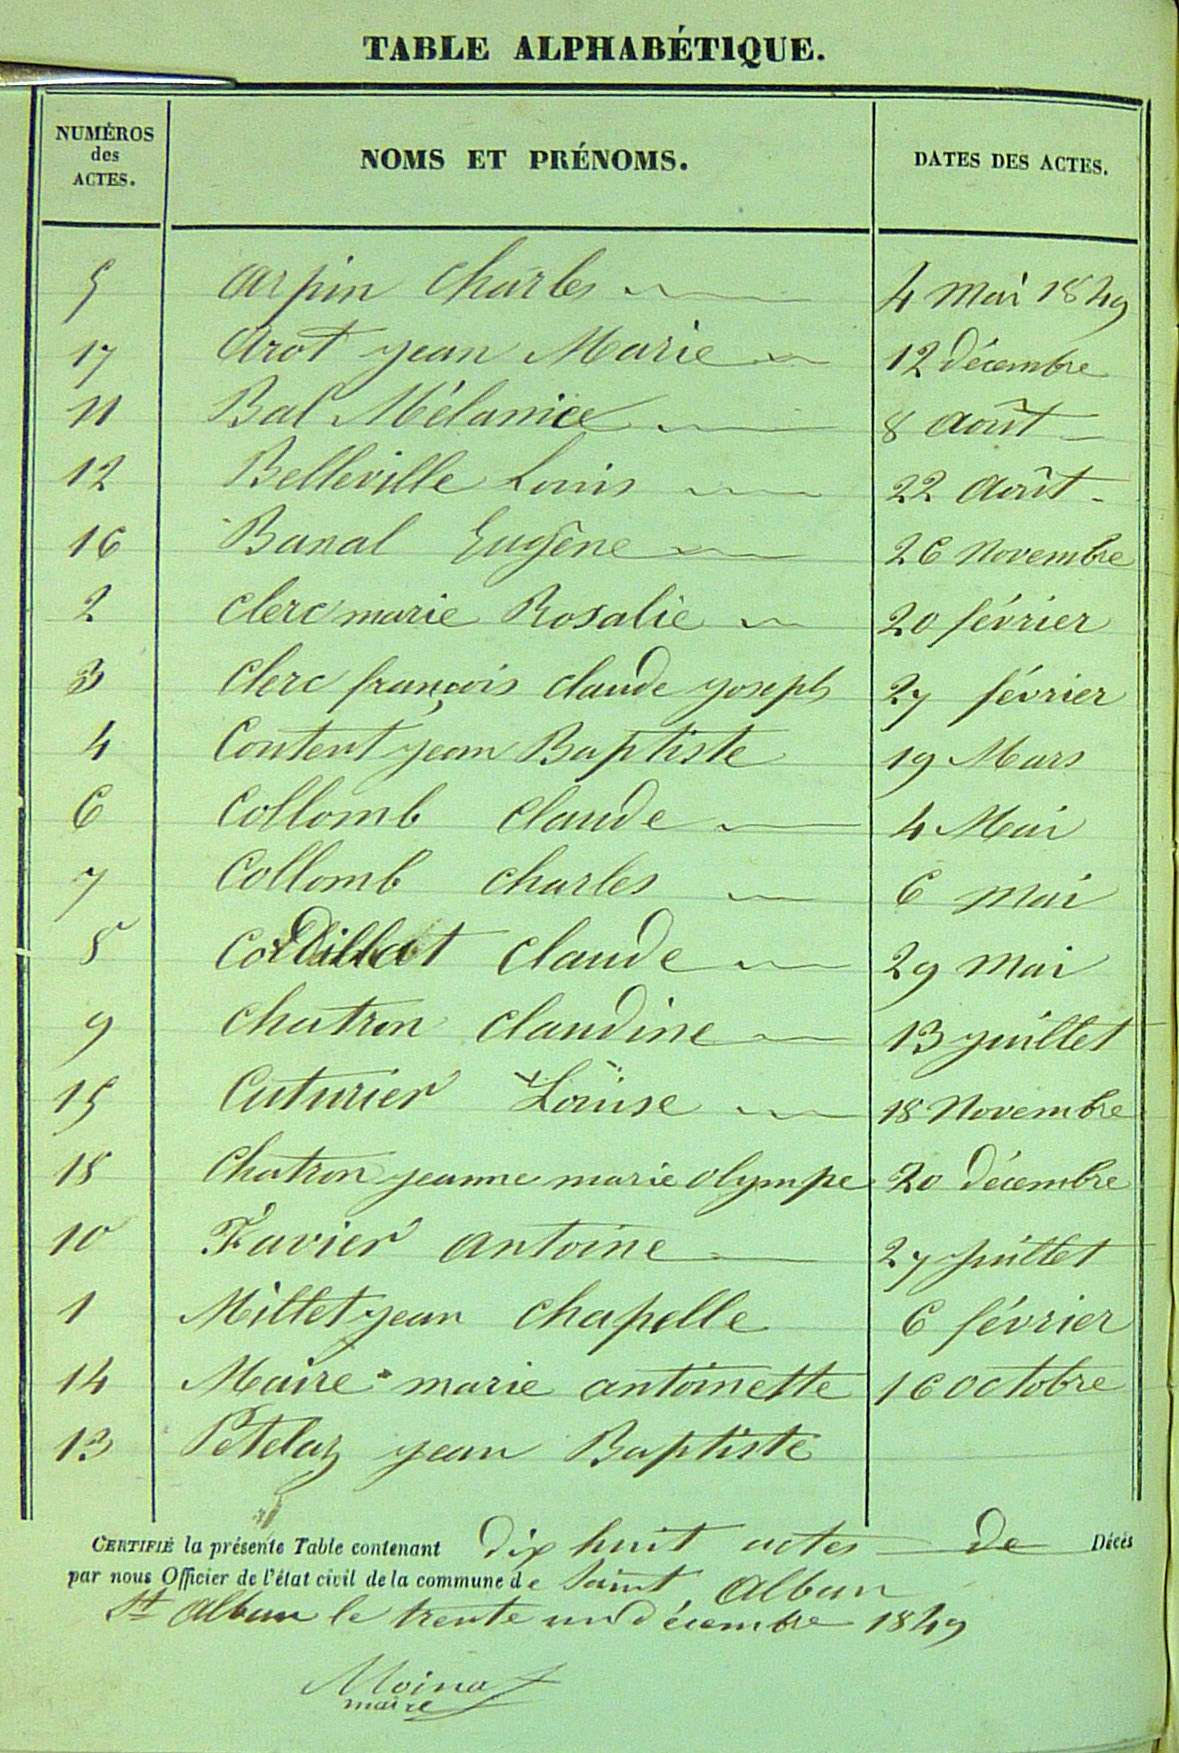 TABLE ALPHABÉTIQUE.
NUMÉROS des ACTES. NOMS ET PRÉNOMS. DATES DES ACTES.
5 Arpin Charles 4 Mai 1849
17 Arot jean Marie 12 décembre
11 Bal Mélanie 8 Août
12 Belleville Louis 22 Août
16 Banal Eugène 26 Novembre
2 Clerc marie Rosalie 20 février
3 Clerc françois claude joseph 27 février
4 Content jean Baptiste 19 Mars
6 Collomb claude 4 Mai
7 Collomb charles 6 mai
8 Cordillat Claude 29 mai
9 Chatron Claudine 13 juillet
15 Cuturier Louise 18 Novembre
18 Chatron jeanne marie olympe 20 décembre
10 Favier antoine 27 juillet
1 Millet jean chapelle 6 février
14 Maire marie antoinette 16 octobre
13 Pételaz jean Baptiste
CERTIFIÉ la présente Table contenant dix huit actes de Décès
par nous Officier de l'état civil de la commune de Saint Alban
St Alban le trente un décembre 1849
Moinat
maire